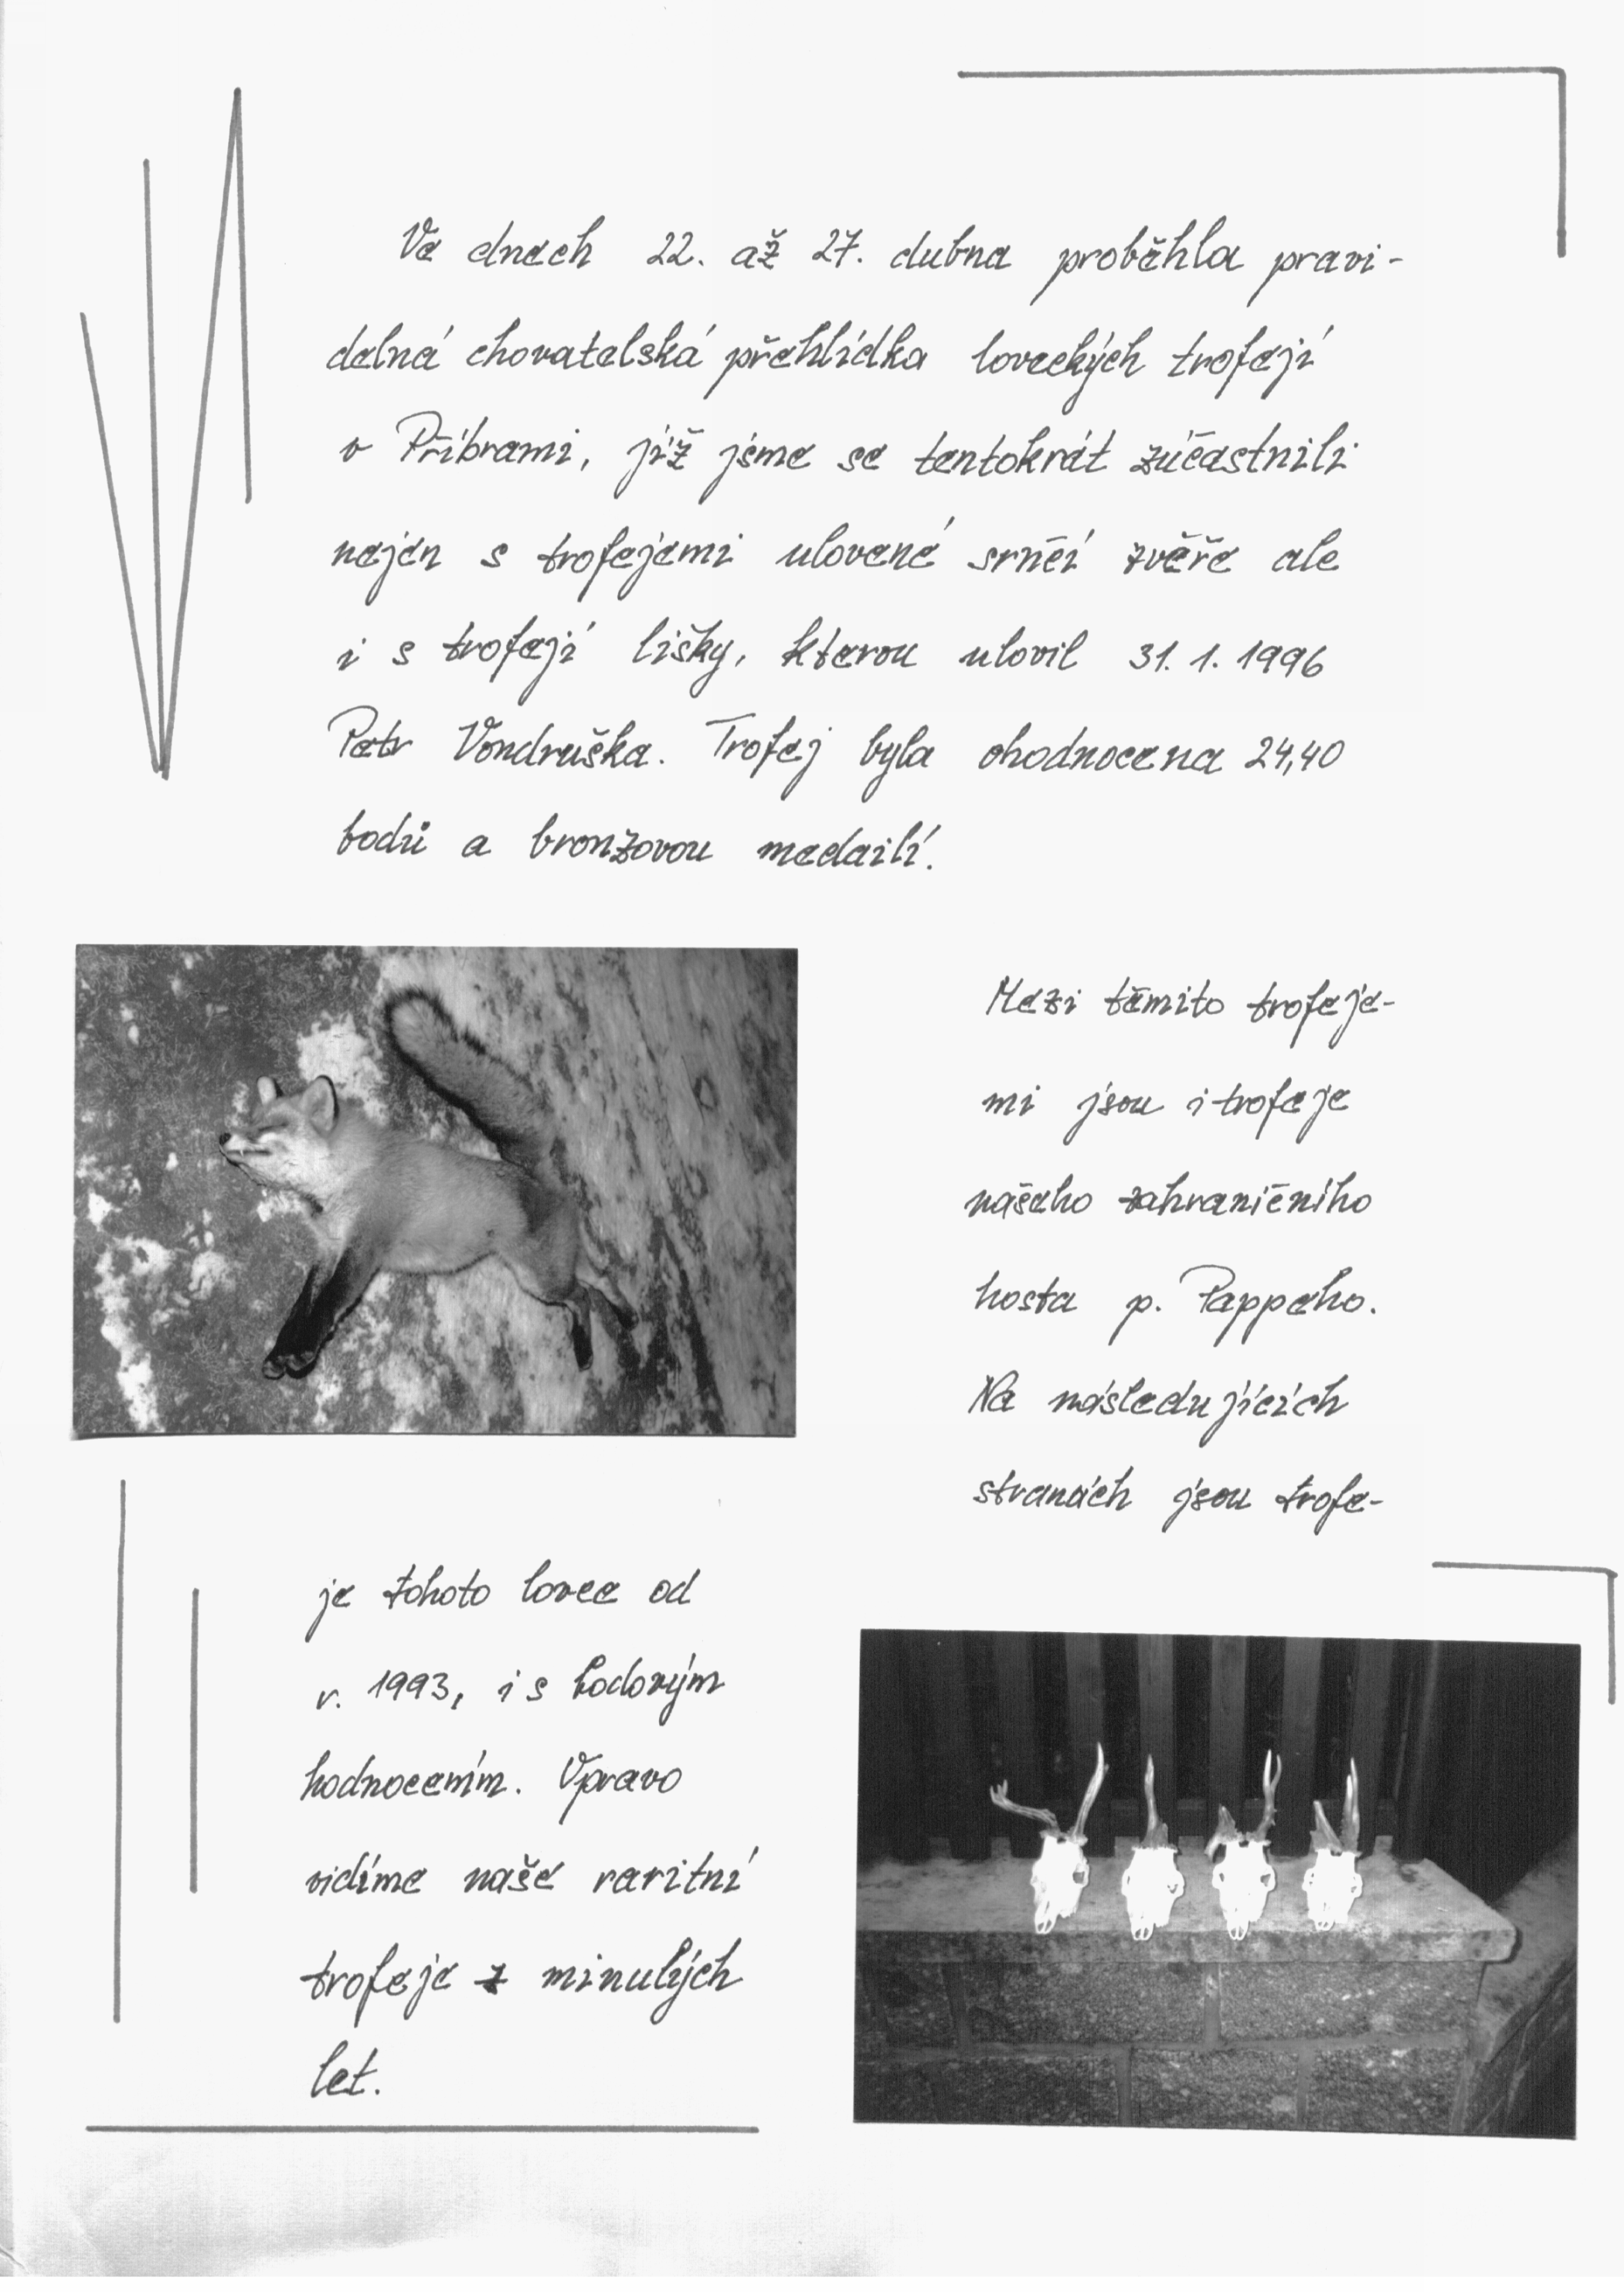 Ve dnech 22. až 27. dubna proběhla pravi-
delná chovatelská přehlídka loveckých trofejí
v Příbrami, jíž jsme se tentokrát zúčastnili
nejen s trofejemi ulovené srnčí zvěře ale
i s trofejí lišky, kterou ulovil 31. 1. 1996
Petr Vondruška. Trofej byla ohodnocena 24,40
bodů a bronzovou medailí.
Mezi těmito trofeje-
mi jsou i trofeje
našeho zahraničního
hosta p. Pappeho.
Na následujících
stranách jsou trofe-
je tohoto lovce od
r. 1993, i s bodovým
hodnocením. Vpravo
vidíme naše raritní
trofeje z minulých
let.